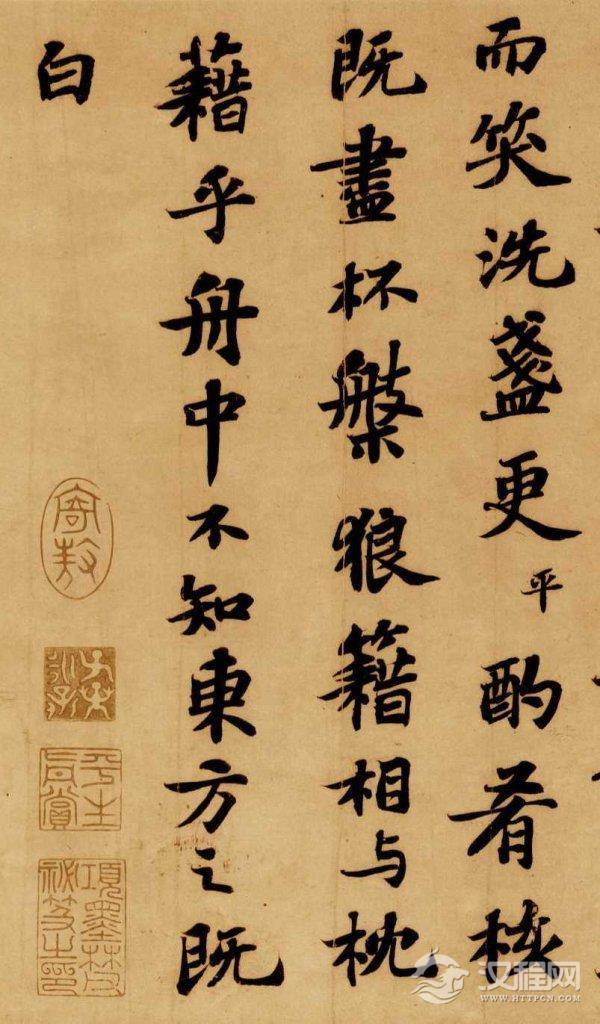 而笑洗盞更平酌肴核
既盡杯槃狼籍相與枕
藉乎舟中不知東方之既
白
平生真賞
項墨林父祕笈之印
汉程网
WWW.HTTPCN.COM